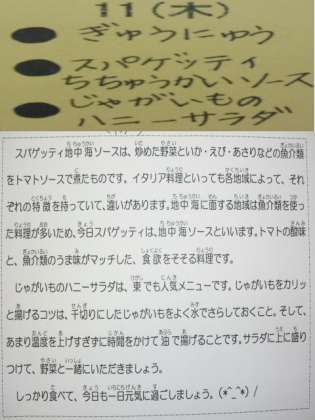 11(木)
ぎゅうにゅう
スパゲッティ
ちちゅうかいソース
じゃがいもの
ハニーサラダ
スパゲッティ地中海ソースは、炒めた野菜といか・えび・あさりなどの魚介類
をトマトソースで煮たものです。イタリア料理といっても各地域によって、それ
ぞれの特徴を持っていて、違いがあります。地中海に面する地域は魚介類を使っ
た料理が多いため、今日スパゲッティは、地中海ソースといいます。トマトの酸味
と、魚介類のうま味がマッチした、食欲をそそる料理です。
じゃがいものハニーサラダは、東でも人気メニューです。じゃがいもをカリッ
と揚げるコツは、千切りにしたじゃがいもをよく水でさらしておくこと。そして、
あまり温度を上げすぎずに時間をかけて油で揚げることです。サラダに上に盛り
つけて、野菜と一緒にいただきましょう。
しっかり食べて、今日も一日元気に過ごしましょう。(*^_^*)/